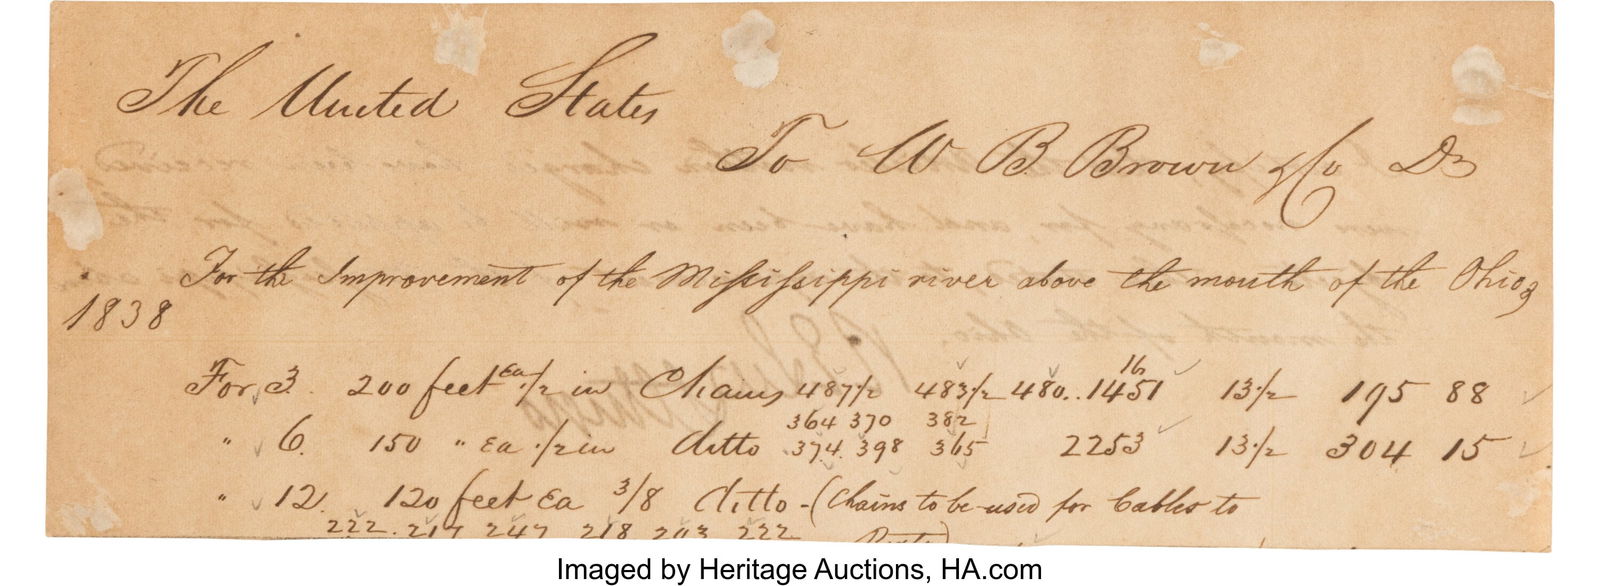 The United States
To W B Brown & Co Dr
For the Improvement of the Mississippi river above the mouth of the Ohio,
1838
For 3. 200 feet Ea 1/2 in Chains 487 1/2 483 1/2 480.. 1451 16 13 1/2 195 88
364 370 382
" 6. 150 " Ea 1/2 in ditto 374. 398 365 2253 13 1/2 304 15
" 12. 120 feet Ea 3/8 ditto - (Chains to be used for Cables to
222. 217 247 218 203 222
Imaged by Heritage Auctions, HA.com